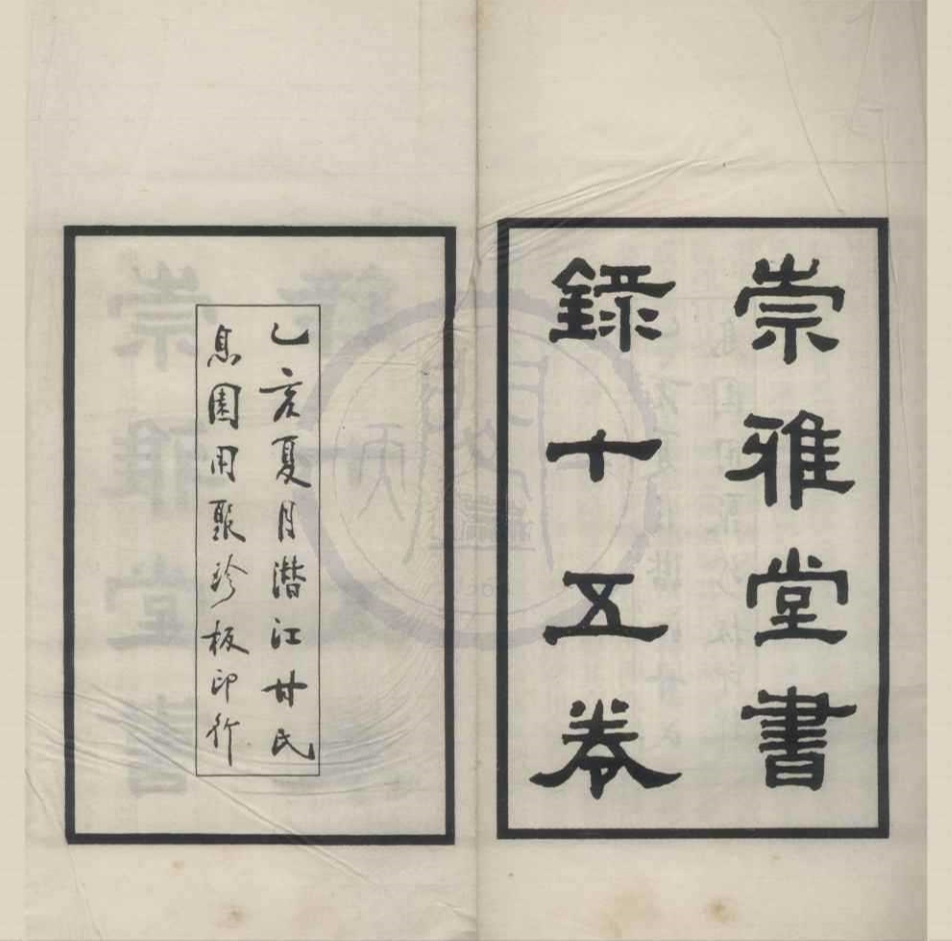 崇雅堂書
録十五卷
乙亥夏月潛江甘氏
息園用聚珍板印行